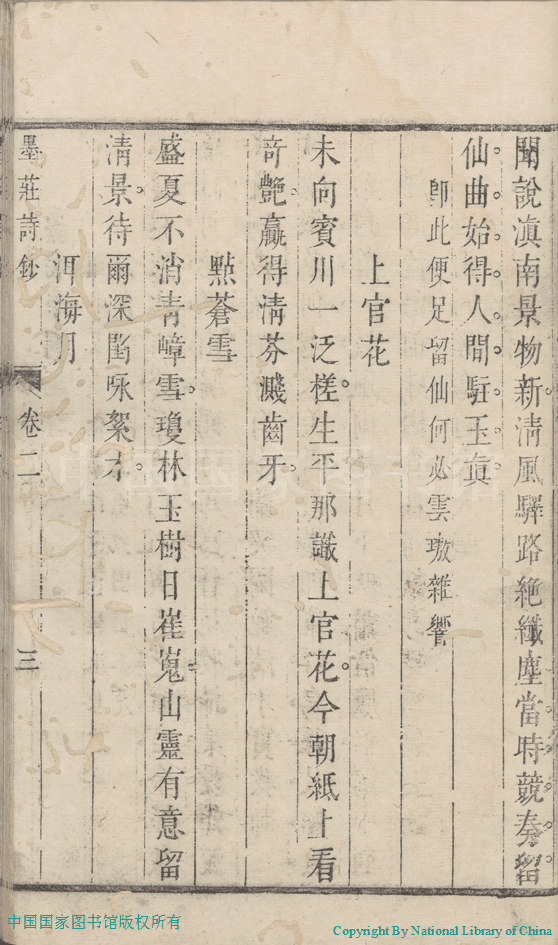 聞說滇南景物新清風驛路絶纖塵當時競奏留
仙曲始得人間駐玉真
卽此便足留仙何必雲璈雜響
上官花
未向賓川一泛槎生平那識上官花今朝紙上看
奇艷贏得清芬濺齒牙
點蒼雪
盛夏不消青嶂雪瓊林玉樹日崔嵬山靈有意留
清景待爾深閨咏絮才
洱海月
墨莊詩鈔 卷二 三
中国国家图书馆版权所有
Copyright By National Library of China